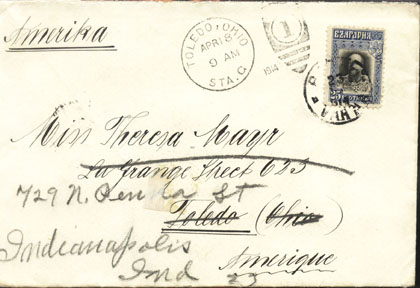 Amerika
TOLEDO, OHIO
APR 8
9 AM
1914
STA. C.
1
БЪЛГАРИЯ
25
Miss Theresa Mayr
La Grange Street 633
729 N. Penna St
Toledo (Ohio)
Indianapolis
Ind
Amerique